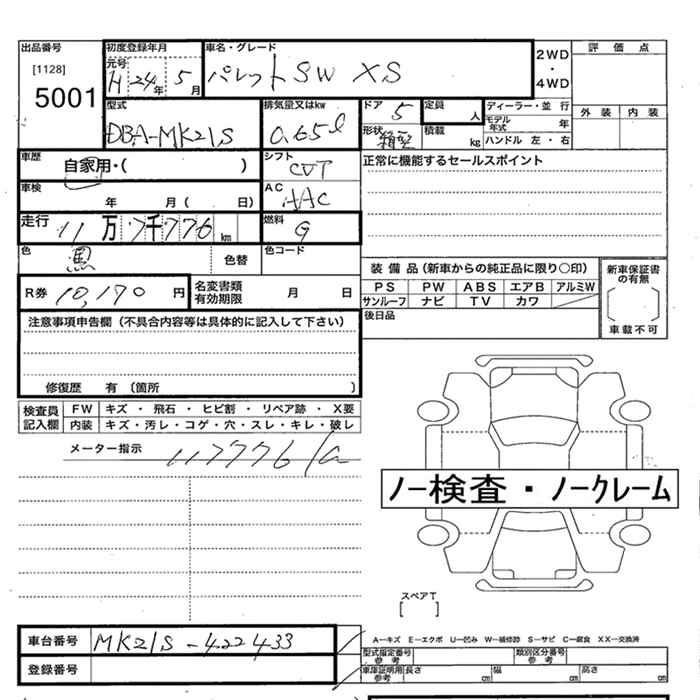 出品番号
[1128]
5001
初度登録年月
元号
H 24年 5月
車名・グレード
パレットSW XS
2WD
・
4WD
評価点
外装 内装
型式
DBA-MK21S
排気量又はkw
0.65ℓ
ドア 5
形状 箱型
定員 人
積載 kg
ディーラー・並行
モデル年式 年
ハンドル 左・右
車歴
自家用・( )
シフト
CVT
正常に機能するセールスポイント
車検
年 月( 日)
AC
AAC
走行
11万7千776km
燃料
G
色
黒
色替
色コード
装備品(新車からの純正品に限り○印)
PS PW ABS エアB アルミW
サンルーフ ナビ TV カワ
新車保証書の有無
車載不可
R券 10,170 円
名変書類有効期限 月 日
後日品
注意事項申告欄(不具合内容等は具体的に記入して下さい)
修復歴 有(箇所 )
検査員記入欄
FW キズ・飛石・ヒビ割・リペア跡・X要
内装 キズ・汚レ・コゲ・穴・スレ・キレ・破レ
メーター指示
117776
ノー検査・ノークレーム
スペアT
[ ]
車台番号 MK21S-422433
登録番号
A−キズ E−エクボ U−凹み W−補修跡 S−サビ C−腐食 XX−交換済
型式指定番号 参考
類別区分番号 参考
車庫証明用 参考
長さ cm 幅 cm 高さ cm